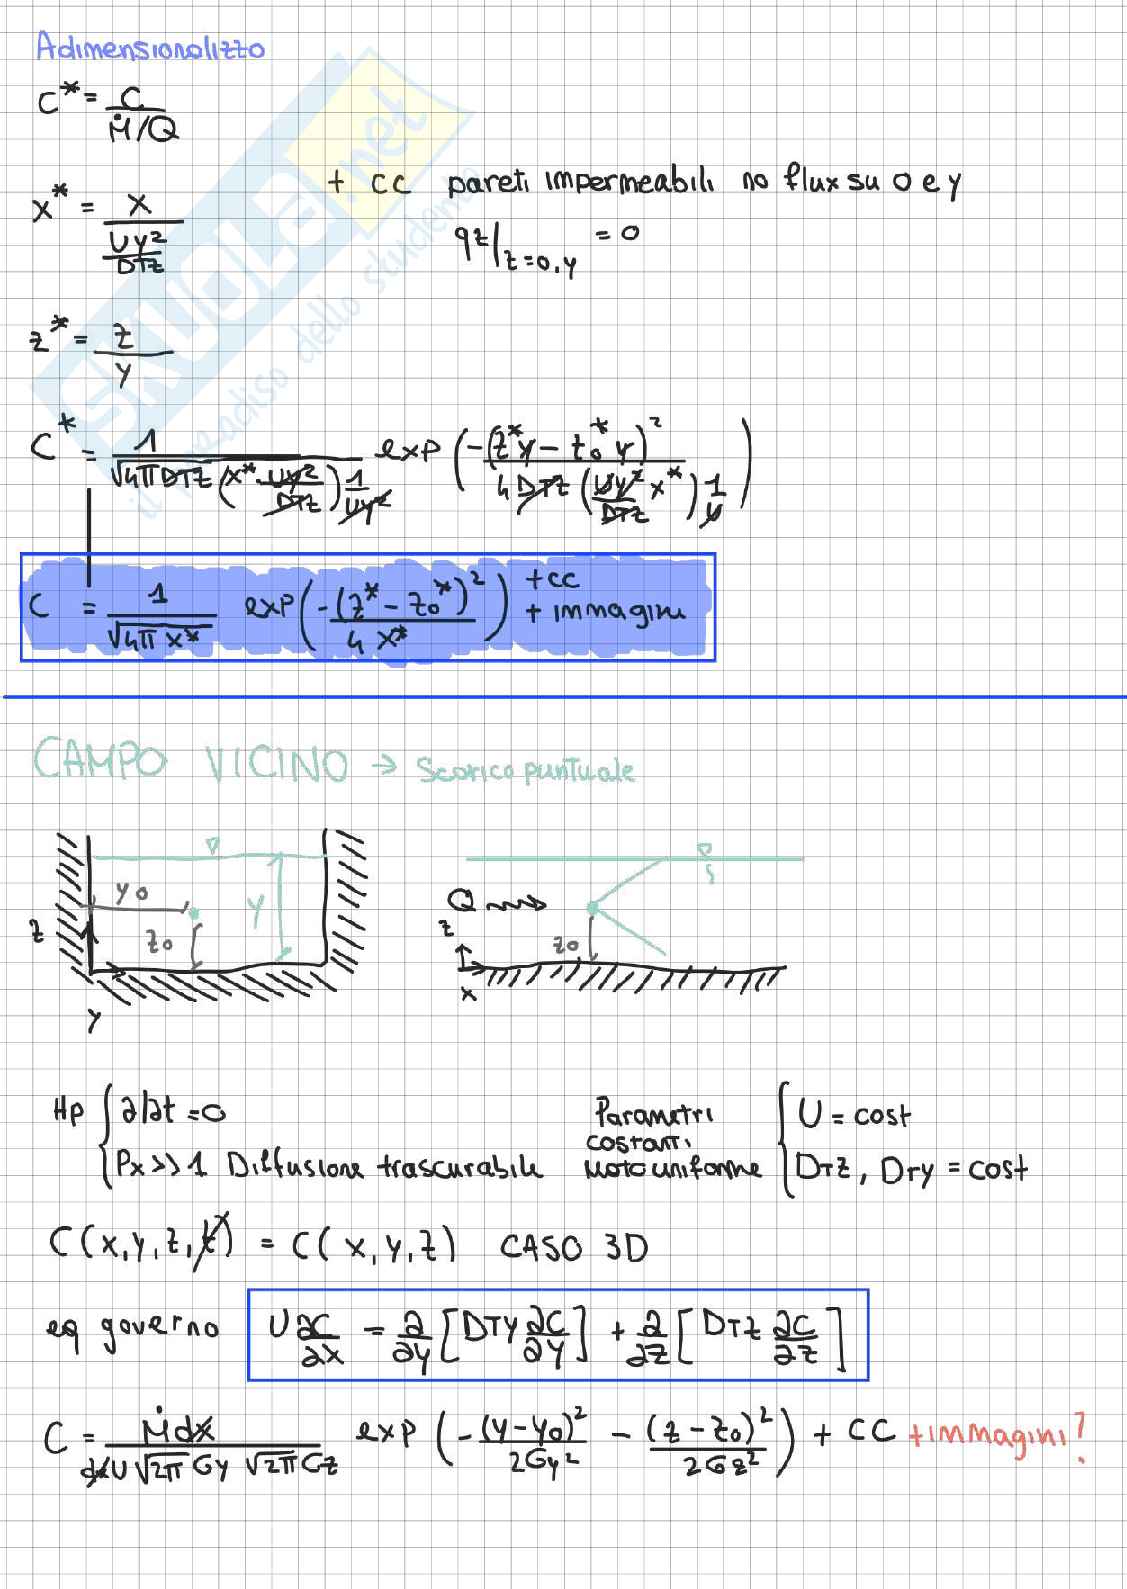 Adimensionalizzo
C* = C / (Ṁ/Q)
+ cc pareti impermeabili no flux su 0 e y
x* = x / (Uy²/DTz)
qz|z=0,y = 0
z* = z / y
C* = 1 / (√4π DTz (x* Uy²/DTz) 1/Uy²) exp (-(z*y - z0*y)² / (4 DTz (Uy²/DTz x*) 1/U))
C = 1 / √4π x* exp (-(z* - z0*)² / 4 x*) +cc + immagini
CAMPO VICINO → Scarico puntuale
y0
Y
z
z0
y
Q
z
z0
x
Hp { ∂/∂t = 0
Px >> 1 Diffusione trascurabile
Parametri costanti
Moto uniforme
{ U = cost
DTz, DTy = cost
C(x,y,z,t) = C(x,y,z) CASO 3D
eq governo U ∂C/∂x = ∂/∂y [DTy ∂C/∂y] + ∂/∂z [DTz ∂C/∂z]
C = Ṁ dx / (dx U √2π σy √2π σz) exp (-(y-y0)² / 2σy² - (z-z0)² / 2σz²) + CC + immagini?
SKUOLA.net
il paradiso dello studente